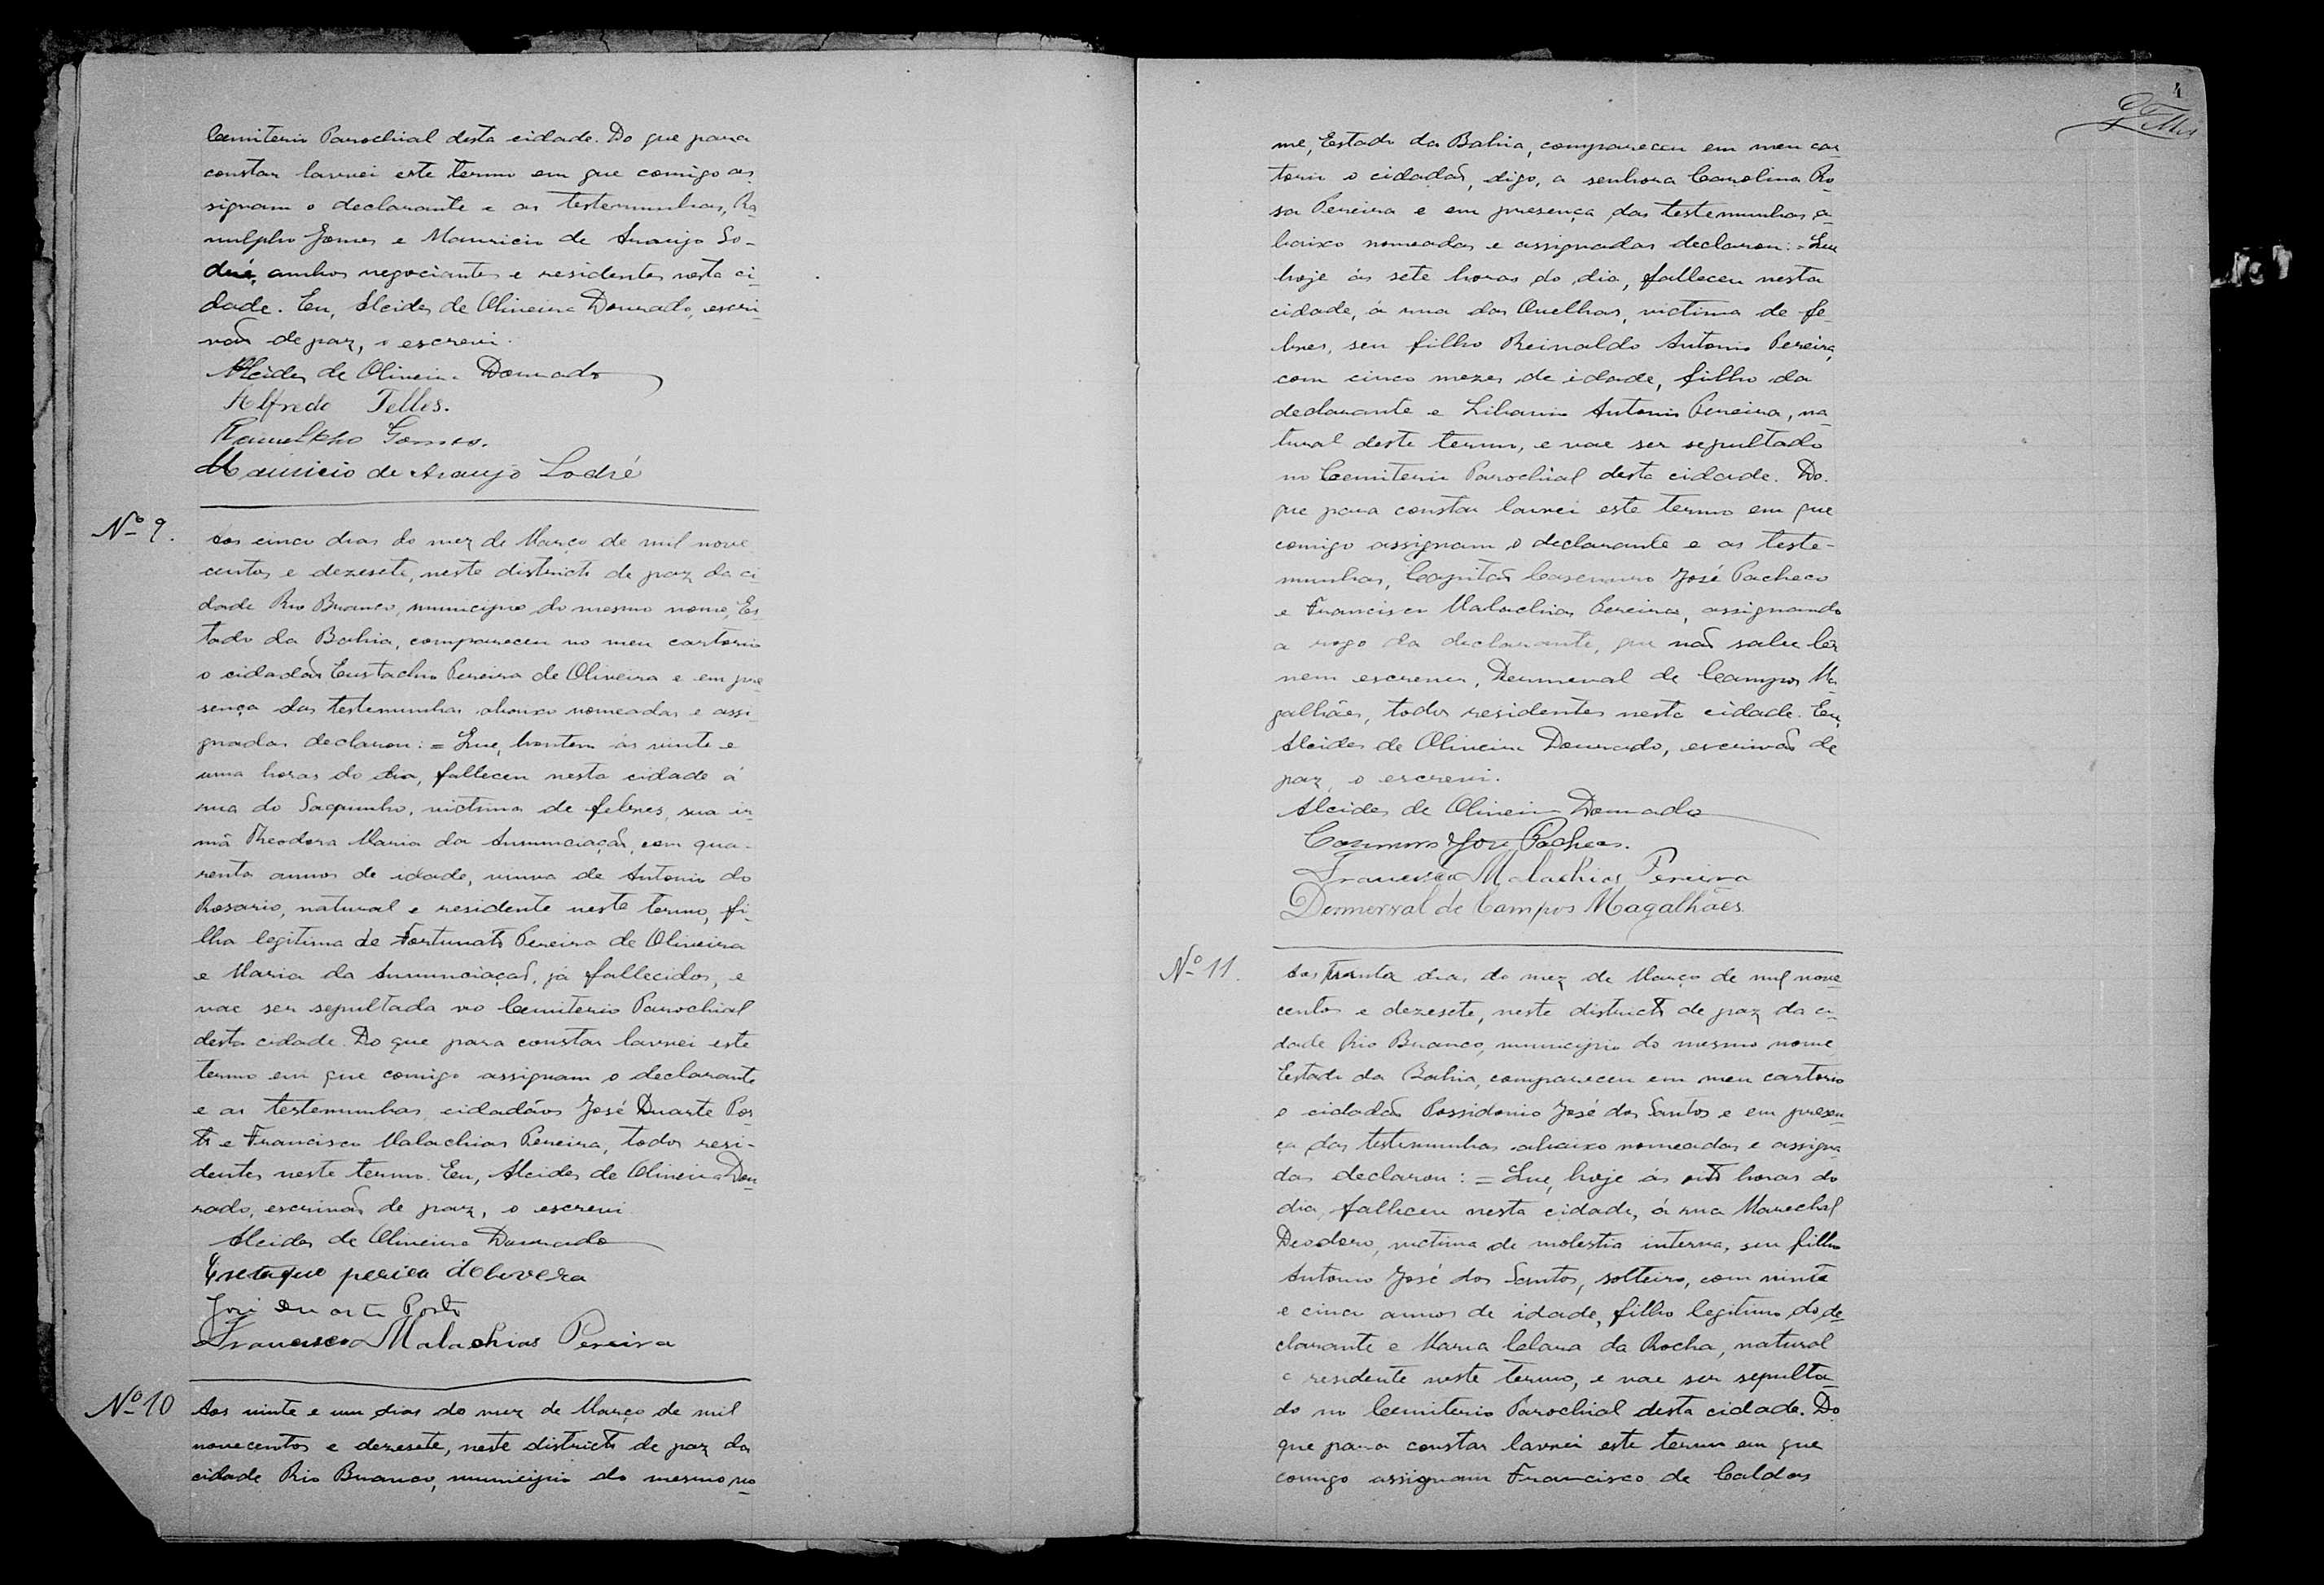 Cemiterio Parochial desta cidade. Do que para
constar lavrei este termo em que comigo as
signam o declarante e as testemunhas, Ra
nulpho Gomes e Mauricio de Araujo So-
dré, ambos negociantes e residentes nesta ci
dade. Eu, Alcides de Oliveira Dourado, escri-
vão de paz, o escrevi.
Alcides de Oliveira Dourado
Alfredo Telles.
Ranulpho Gomes.
Mauricio de Araujo Sodré
Nº 9.
Aos cinco dias do mez de Março de mil nove
centos e dezesete, neste districto de paz da ci
dade Rio Branco, municipio do mesmo nome, Es-
tado da Bahia, compareceu no meu cartorio
o cidadão Eustachio Pereira de Oliveira e em pre
sença das testemunhas abaixo nomeadas e assi-
gnadas declarou: = Que, hontem ás vinte e
uma horas do dia, falleceu nesta cidade á
rua do, victima de febres, sua ir-
mã Theodora Maria da Annunciação, com qua-
renta annos de idade, viuva de Antonio do
Rosario, natural e residente neste termo, fi-
lha legitima de Fortunato Pereira de Oliveira
e Maria da Annunciação, já fallecidos, e
vae ser sepultada no Cemiterio Parochial
desta cidade. Do que para constar lavrei este
termo em que comigo assignam o declarante
e as testemunhas, cidadãos José Duarte Por
to e Francisco Malachias Pereira, todos resi-
dentes neste termo. Eu, Alcides de Oliveira Dou
rado, escrivão de paz, o escrevi
Alcides de Oliveira Dourado
José Duarte Porto
Francisco Malachias Pereira
Nº 10
Aos vinte e um dias do mez de Março de mil
novecentos e dezesete, neste districto de paz da
cidade Rio Branco, municipio do mesmo no
4
me, Estado da Bahia, compareceu em meu car
torio o cidadão, digo, a senhora Carolina Ro
sa Pereira e em presença das testemunhas a-
baixo nomeadas e assignadas declarou: = Que
hoje ás sete horas do dia, falleceu nesta
cidade, á rua das Quelhas, victima de fe
bres, seu filho Reinaldo Antonio Pereira,
com cinco mezes de idade, filho da
declarante e Libanio Antonio Pereira, na
tural deste termo, e vae ser sepultado
no Cemiterio Parochial desta cidade. Do
que para constar lavrei este termo em que
comigo assignam o declarante e as teste-
munhas, Capitão Casemiro José Pacheco
e Francisco Malachias Pereira, assignando
a rogo da declarante, que não sabe ler
nem escrever, Dermeval de Campos Ma
galhães, todos residentes nesta cidade. Eu,
Alcides de Oliveira Dourado, escrivão de
paz, o escrevi.
Alcides de Oliveira Dourado
Casimiro José Pacheco.
Francisco Malachias Pereira
Dermerval de Campos Magalhães.
Nº 11.
Aos trinta dias do mez de Março de mil nove
centos e dezesete, neste districto de paz da ci-
dade Rio Branco, municipio do mesmo nome
Estado da Bahia, compareceu em meu cartorio
o cidadão Possidonio José dos Santos e em presen
ça das testemunhas abaixo nomeadas e assigna
das declarou: = Que, hoje ás oito horas do
dia, falleceu nesta cidade, á rua Marechal
Deodoro, victima de molestia interna, seu filho
Antonio José dos Santos, solteiro, com vinte
e cinco annos de idade, filho legitimo do de
clarante e Maria Clara da Rocha, natural
e residente neste termo, e vae ser sepulta
do no Cemiterio Parochial desta cidade. Do
que para constar lavrei este termo em que
comigo assignam Francisco de Caldas